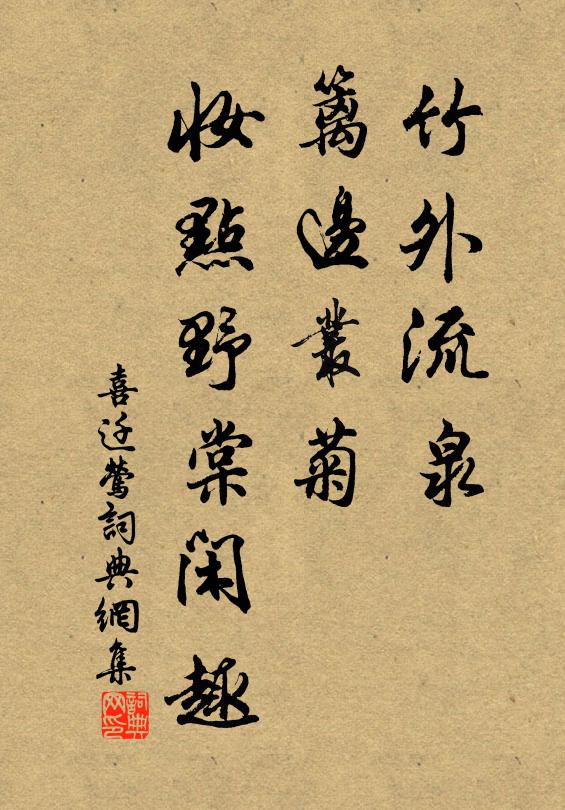 竹外流泉
籬邊叢菊
妝點野棠閑趣
喜迁鶯詞典網集
詞典网印